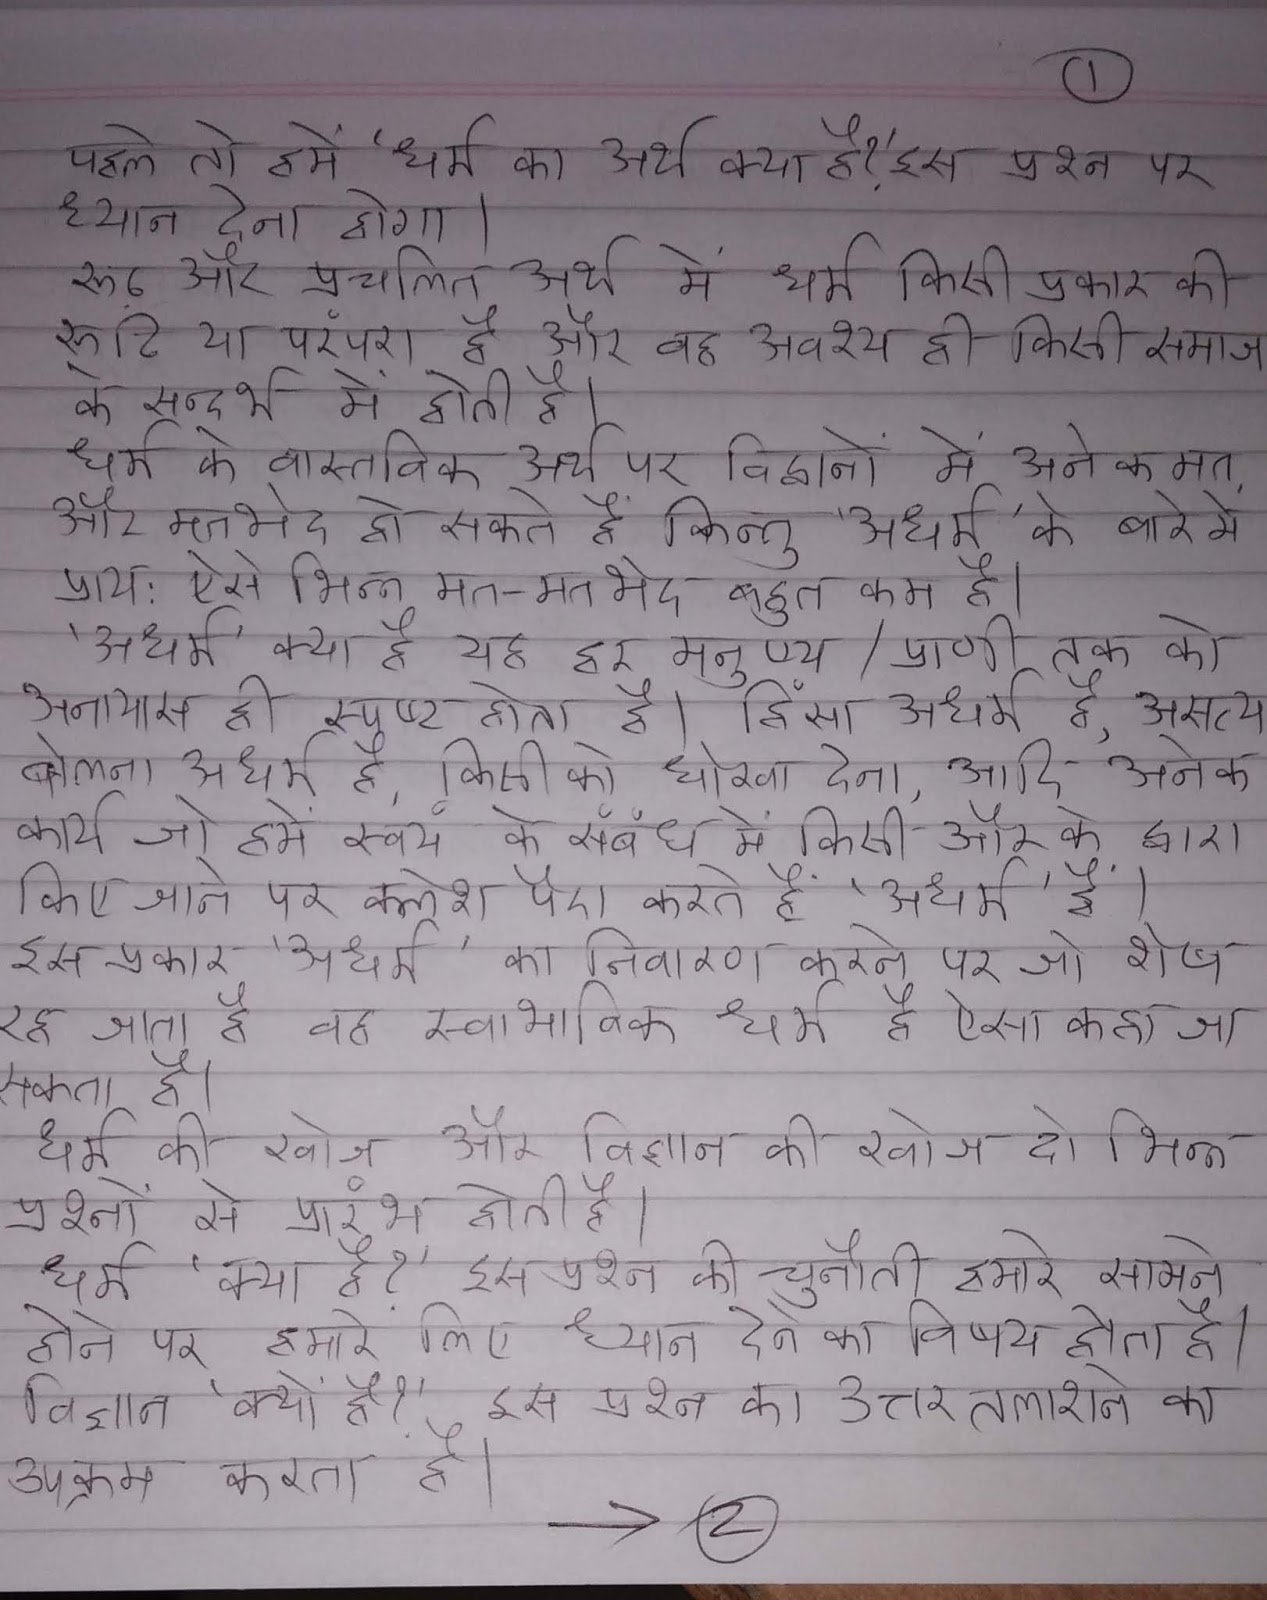 ①
पहले तो हमें 'धर्म का अर्थ क्या है?' इस प्रश्न पर
ध्यान देना होगा।
रूढ़ और प्रचलित अर्थ में धर्म किसी प्रकार की
रूढि या परंपरा है और वह अवश्य ही किसी समाज
के सन्दर्भ में होती है।
धर्म के वास्तविक अर्थ पर विद्वानों में अनेक मत,
और मतभेद हो सकते हैं किन्तु 'अधर्म' के बारे में
प्रायः ऐसे भिन्न मत-मतभेद बहुत कम है।
'अधर्म' क्या है यह हर मनुष्य / प्राणी तक को
अनायास ही स्पष्ट होता है। हिंसा अधर्म है, असत्य
बोलना अधर्म है, किसी को धोखा देना, आदि अनेक
कार्य जो हमें स्वयं के संबंध में किसी और के द्वारा
किए जाने पर क्लेश पैदा करते हैं 'अधर्म' हैं।
इस प्रकार 'अधर्म' का निवारण करने पर जो शेष
रह जाता है वह स्वाभाविक धर्म है ऐसा कहा जा
सकता है।
धर्म की खोज और विज्ञान की खोज दो भिन्न
प्रश्नों से प्रारंभ होती है।
धर्म 'क्या है?' इस प्रश्न की चुनौती हमारे सामने
होने पर हमारे लिए ध्यान देने का विषय होता है।
विज्ञान 'क्यों है?' इस प्रश्न का उत्तर तलाशने का
उपक्रम करता है।
→ ②